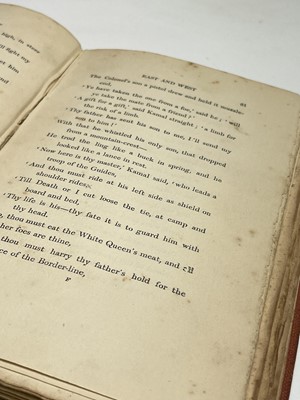 high, in three
ll fight my
et him
EAST AND WEST
The Colonel's son a pistol drew and held it muzzle-
end,
'Ye have taken the one from a foe,' said he;
ye take the mate from a friend?'
'A gift for a gift,' said Kamal straight; 'a limb for
the risk of a limb.
'Thy father has sent his son to me, I'll send my
son to him!'
With that he whistled his only son, that dropped
from a mountain-crest—
He trod the ling like a buck in spring, and he
looked like a lance in rest.
'Now here is thy master,' Kamal said, 'who leads a
troop of the Guides,
'And thou must ride at his left side as shield on
shoulder rides.
'Till Death or I cut loose the tie, at camp and
board and bed,
'Thy life is his—thy fate it is to guard him with
thy head.
, thou must eat the White Queen's meat, and all
her foes are thine,
thou must harry thy father's hold for the
ce of the Border-line,
F